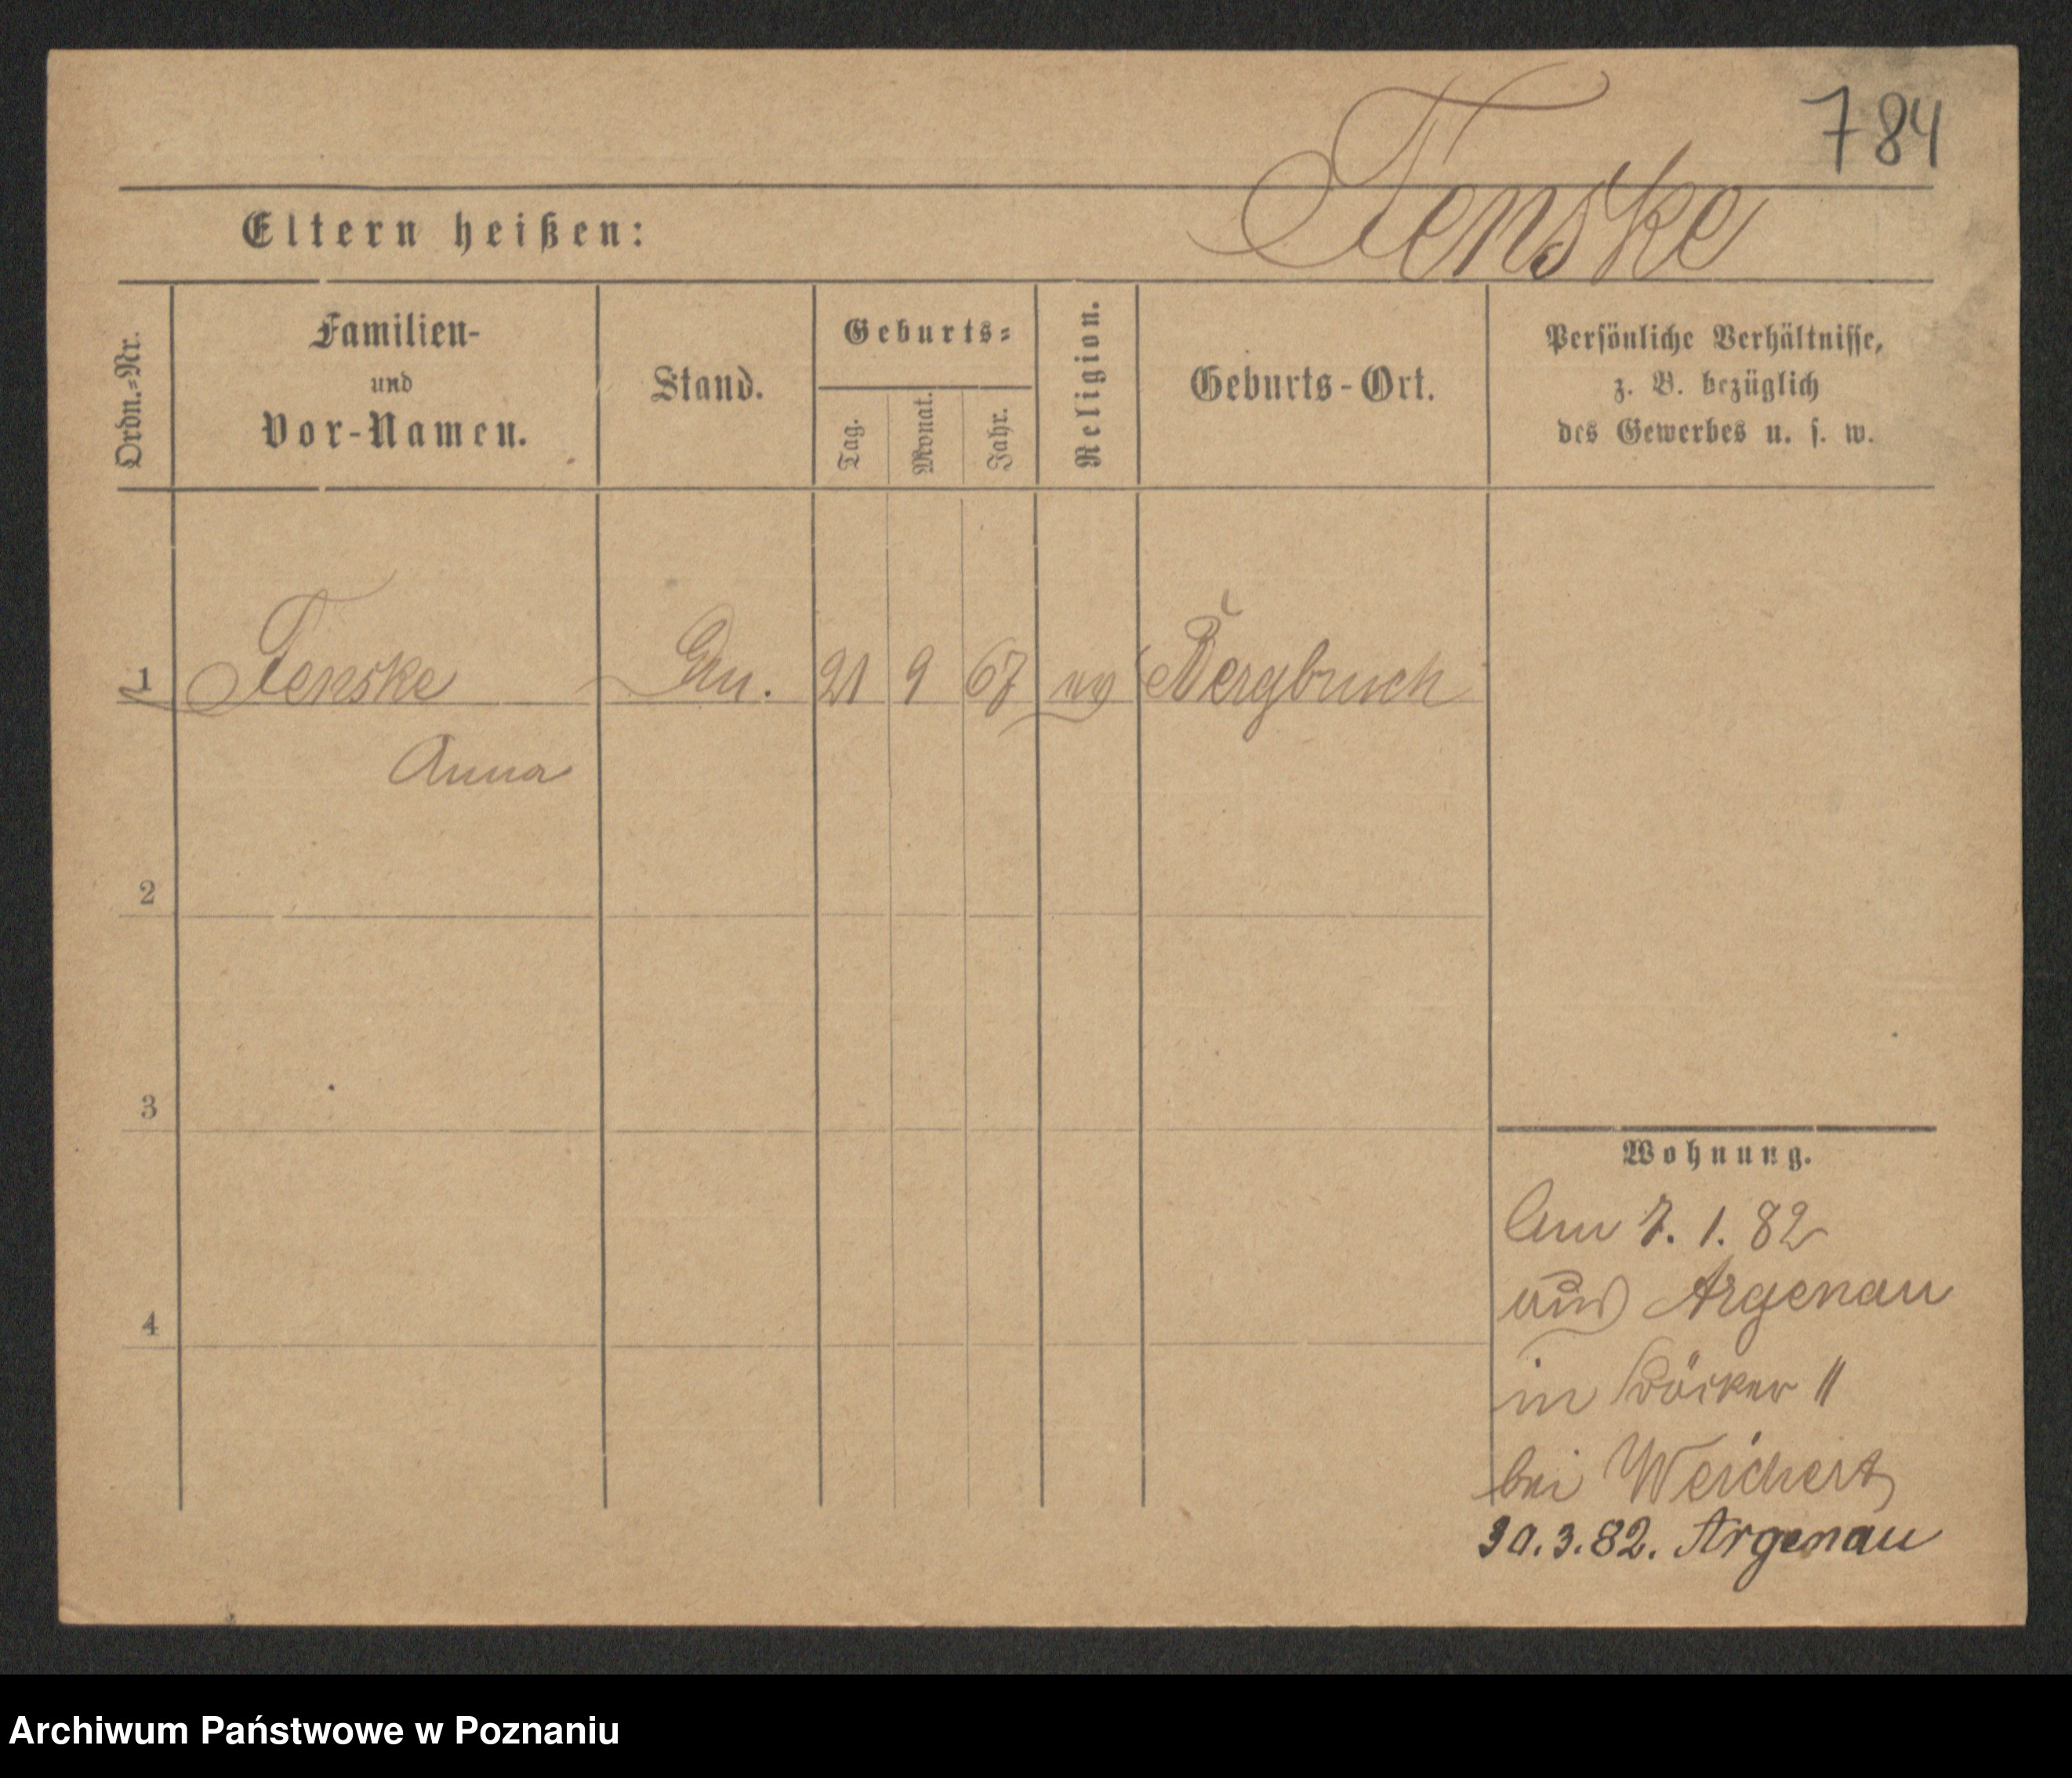 784
Fenske
Eltern heißen:
Ordn.=Nr.
Familien-
und
Vor-Namen.
Stand.
Geburts=
Tag.
Monat.
Jahr.
Religion.
Geburts-Ort.
Persönliche Verhältnisse,
z. B. bezüglich
des Gewerbes u. s. w.
1 Fenske 21 9 67 ev Bergbruch
Anna
2
3
4
Wohnung.
Am 7. 1. 82
aus Argenau
in 11
bei Weichert
30.3.82. Argenau
Archiwum Państwowe w Poznaniu